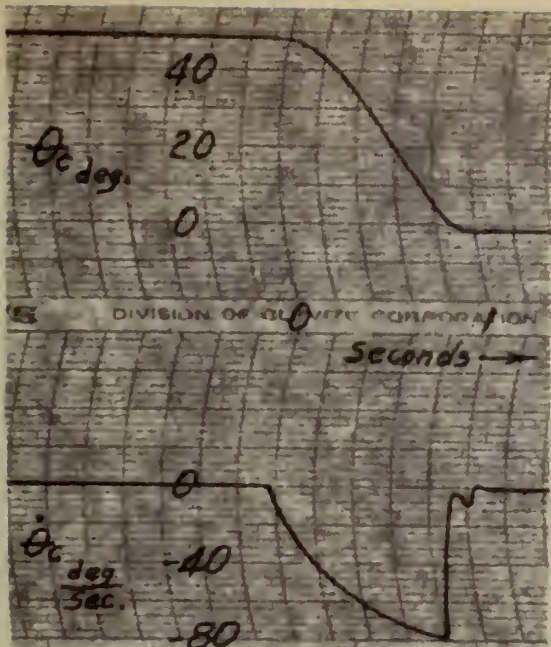 40
θc deg.
20
0
DIVISION OF CORPORATION
0 1
Seconds →
0
θ̇c deg/sec.
-40
-80